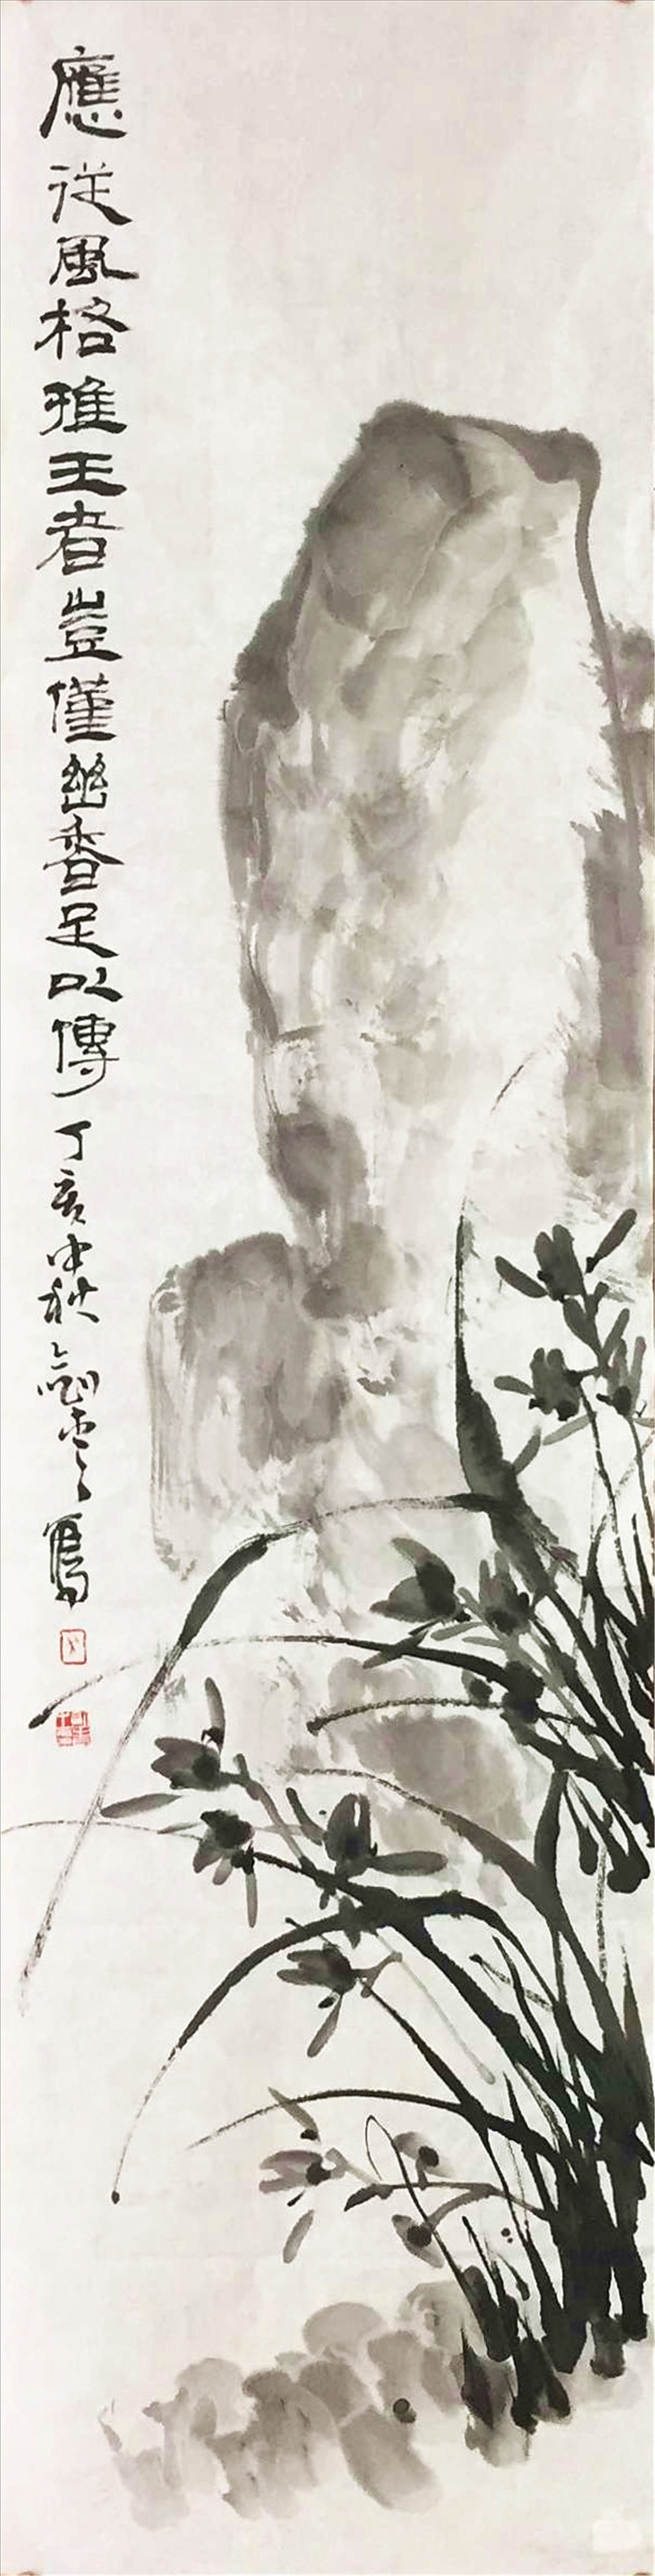 應從風格推王者豈僅幽香足以傳丁亥中秋劍雲寫